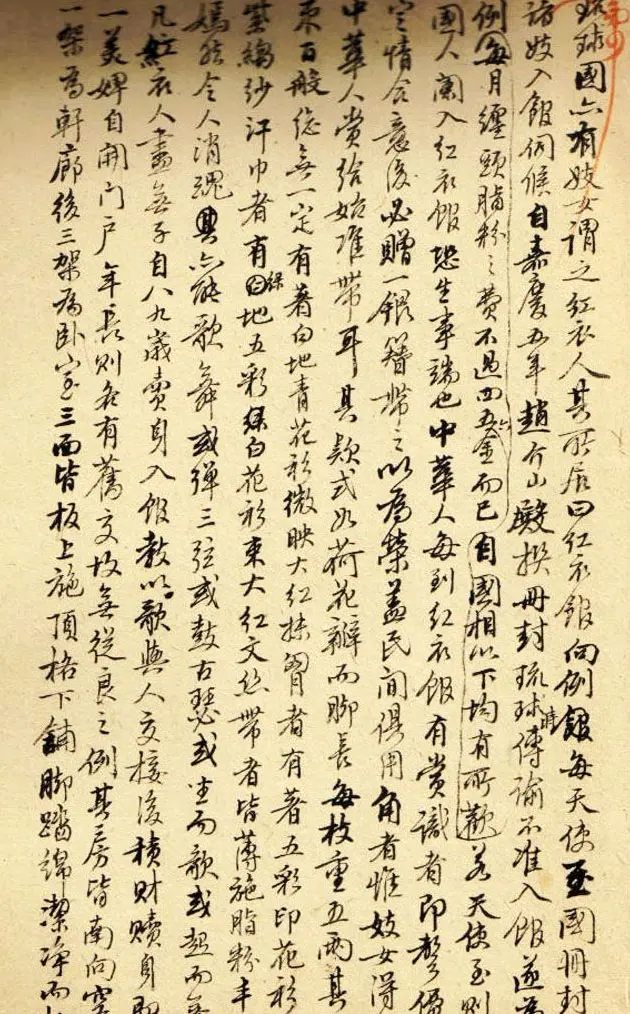 琉球國亦有妓女謂之紅衣人其所居曰紅衣館向例館每天使至國冊封
諸妓入館伺候自嘉慶五年趙介山殿撰冊封琉球時傳諭不准入館遂為
例每月纏頭脂粉之費不過四五六金而已自國相以下均有所歡若天使至則
國人闌入紅衣館恐生事端也中華人每到紅衣館有賞識者即
定情合意後必贈一銀簪帶之以為榮蓋民間俱用角者惟妓女得
中華人賞給始准帶耳其款式如荷花瓣而腳長每枚重五兩其
束百般總無一定有著白地青花衫微映大紅抹胸者有著五彩印花衫
紫縐紗汗巾者有綠地五彩綠白花衫束大紅文絲帶者皆薄施脂粉丰
嫣然令人消魂其亦能歌舞或彈三弦或鼓古瑟或坐而歌或起而舞
凡紅衣人盡無子自八九歲賣身入館教以歌與人交接後積財贖身即
一美婢自開門戶年長則各有舊交故無從良之例其房皆南向
一架為軒廊後三架為臥室三面皆板上施頂格下鋪腳踏綿潔淨而